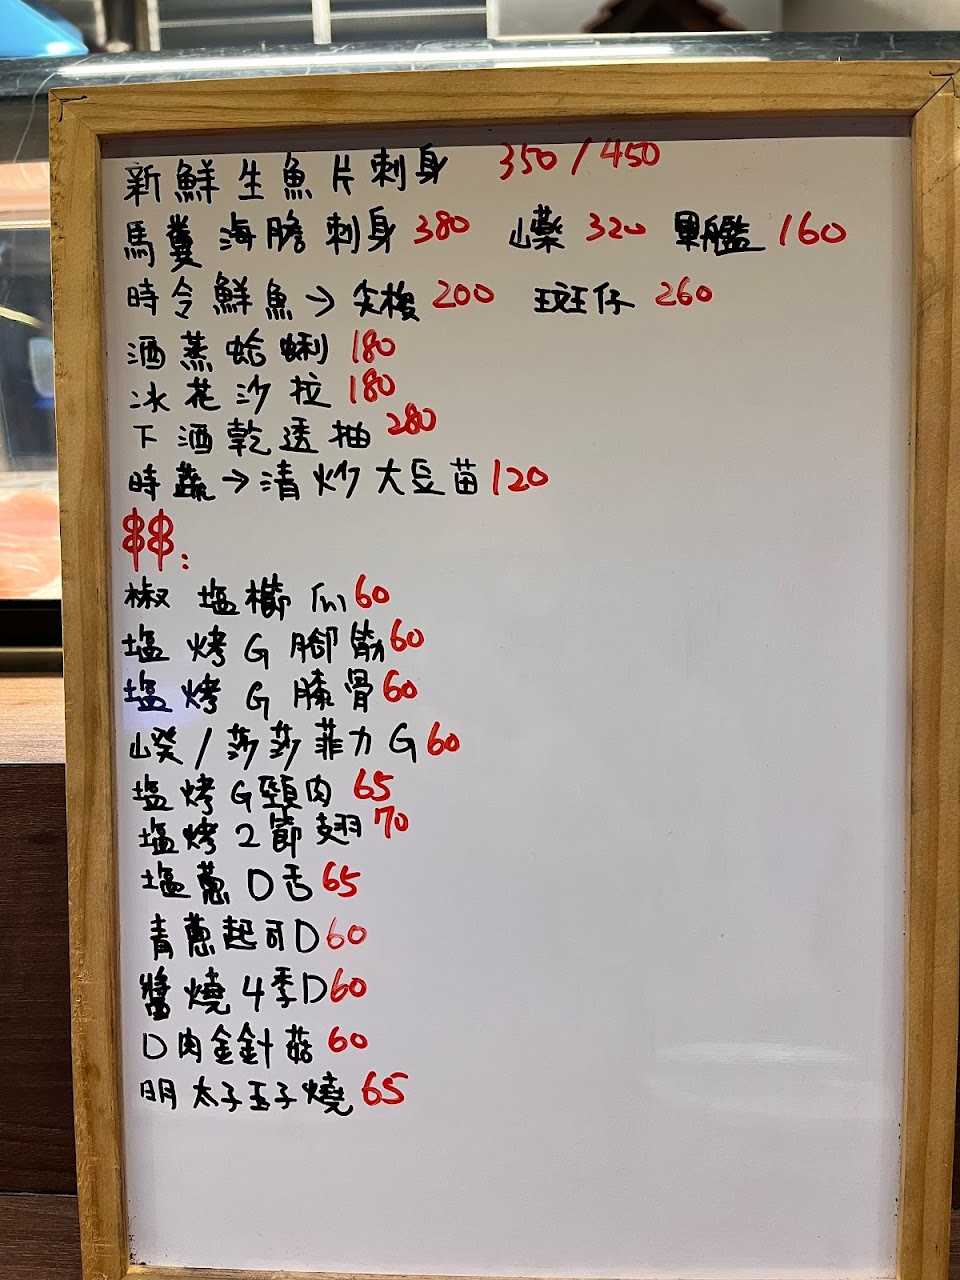 新鮮生魚片刺身 350/450
馬糞海膽刺身 380 320 160
時令鮮魚→尖梭 200 斑仔 260
酒蒸蛤蜊 180
冰花沙拉 180
下酒乾透抽 280
時蔬→清炒大豆苗 120
串串:
椒塩櫛瓜 60
塩烤G腳筋 60
塩烤G膝骨 60
/莎莎菲力G 60
塩烤G頸肉 65
塩烤2節翅 70
塩蔥D舌 65
青蔥起司D 60
醬燒4季D 60
D肉金針菇 60
明太子玉子燒 65